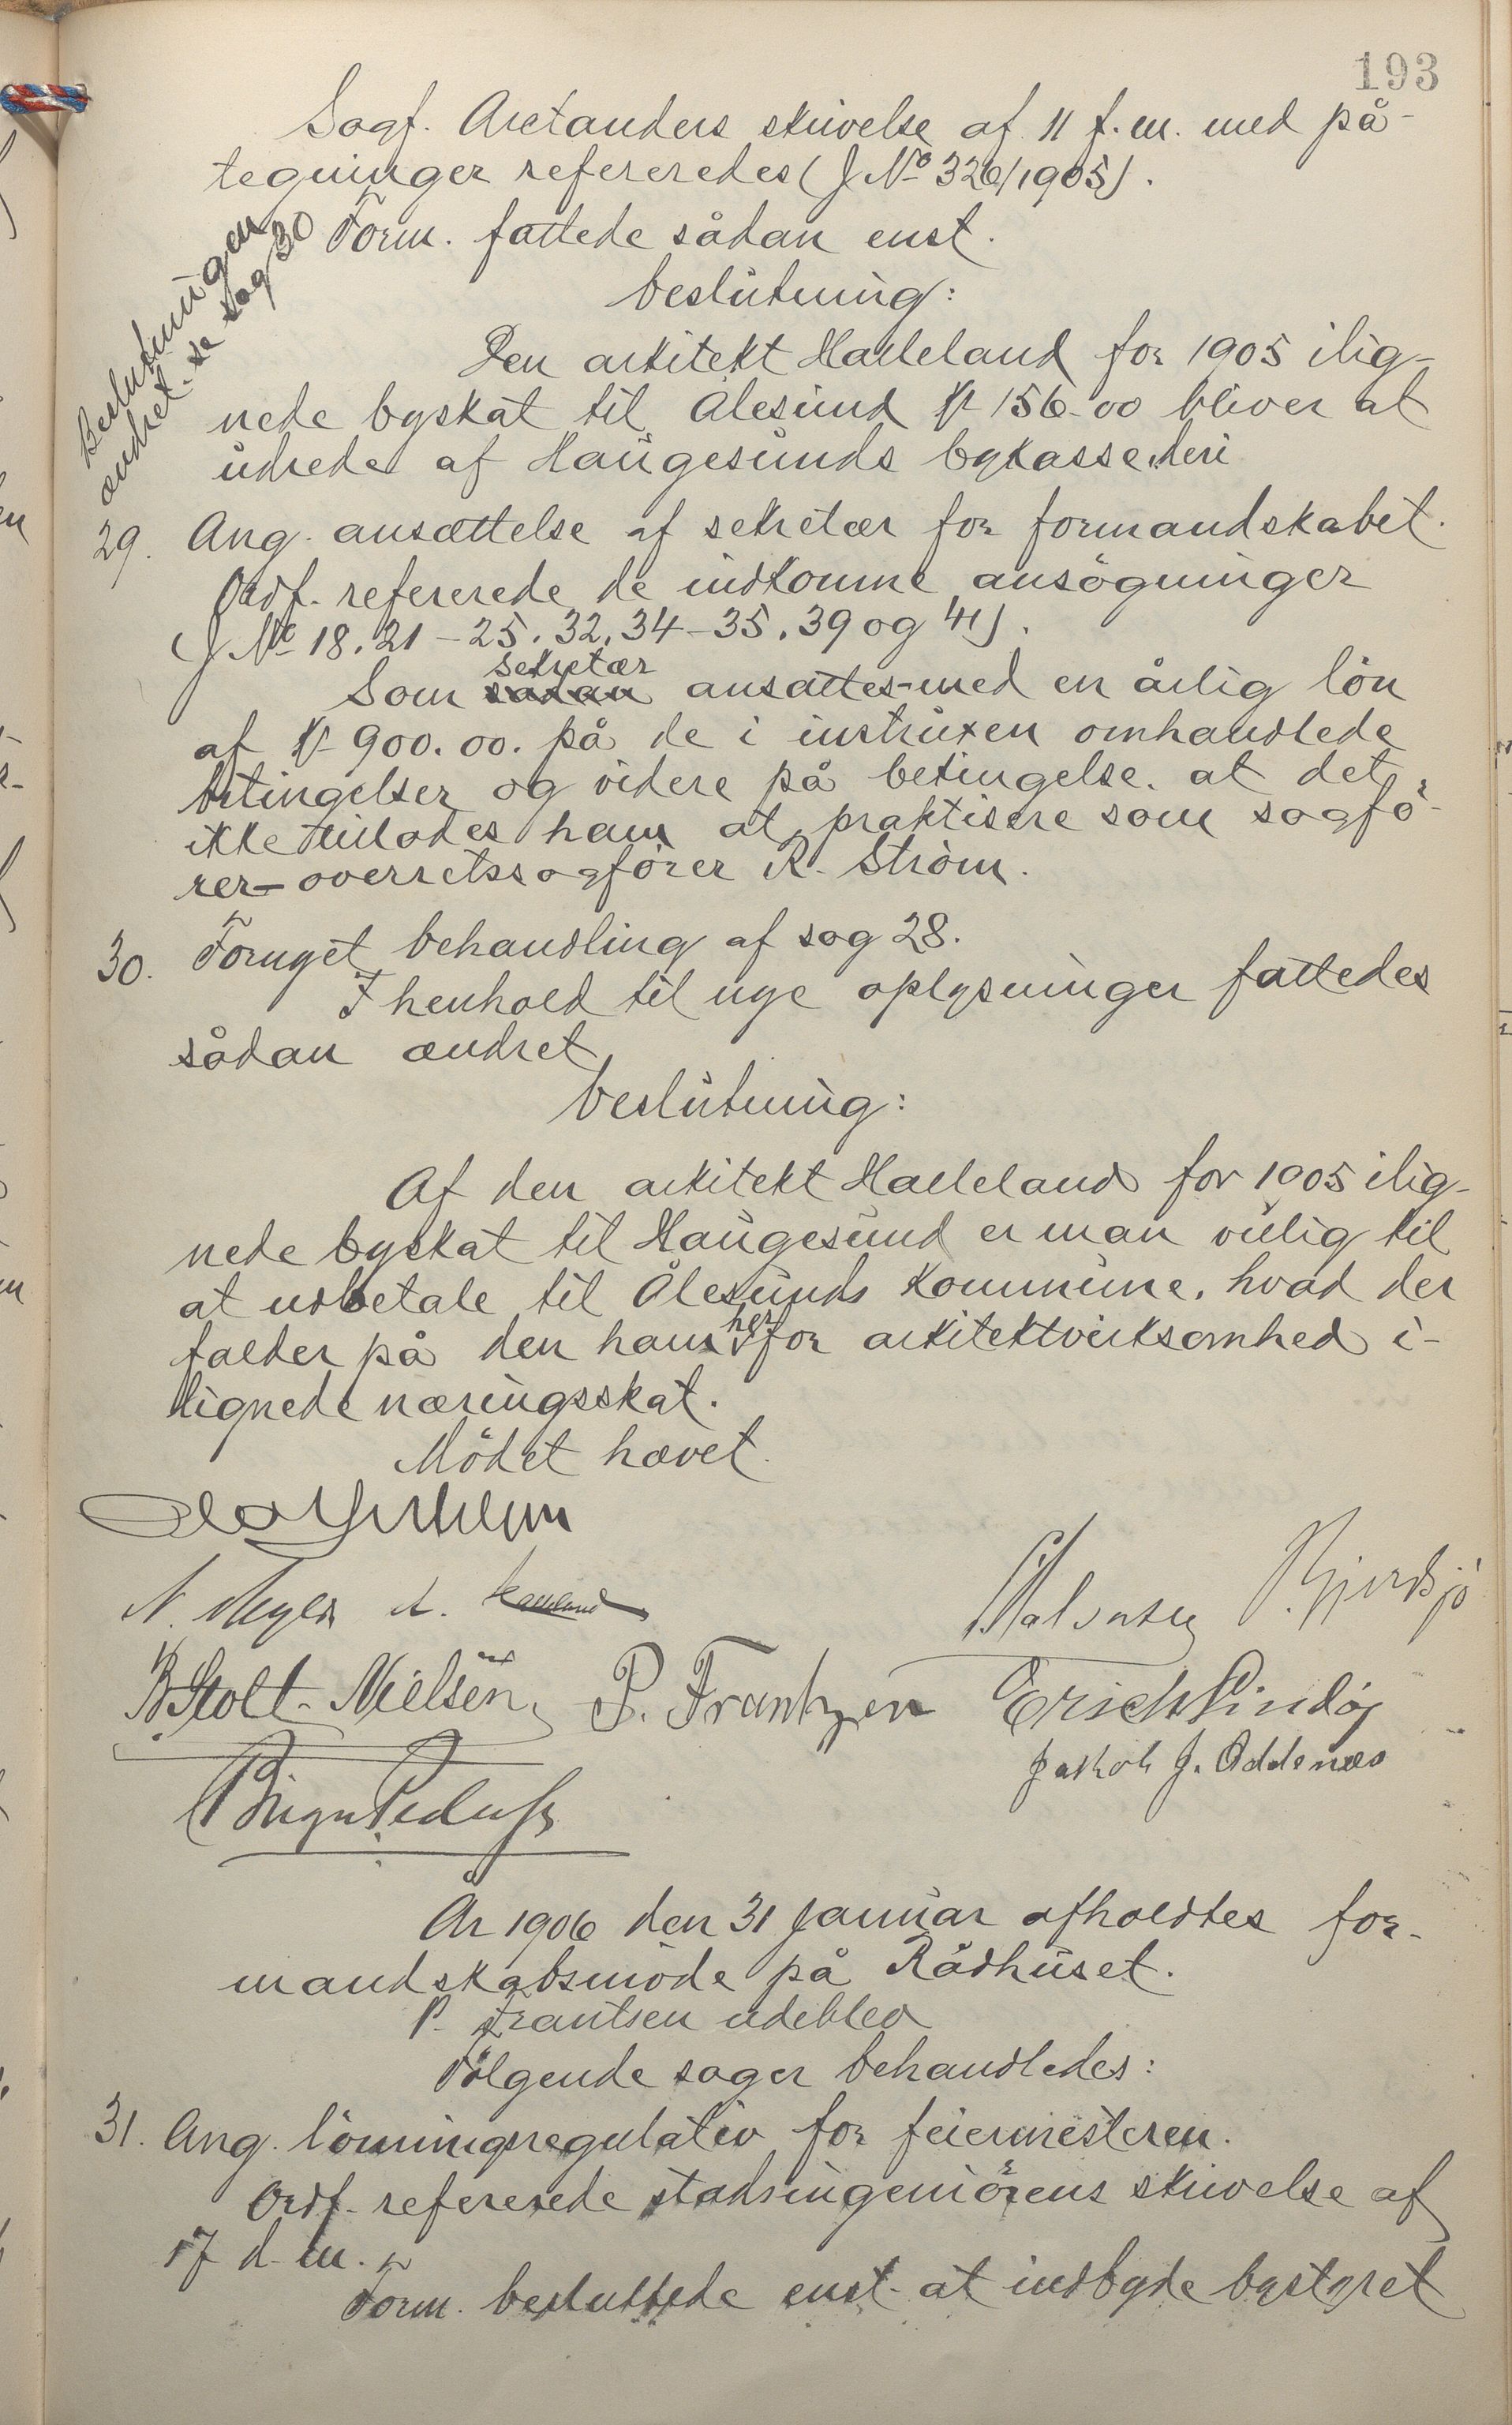 193
Sagf. Arctanders skrivelse af 11 f.m. med på-
tegninger refereredes (J No 326/1905).
Form. fattede sådan enst.
beslutning:
Beslutningen
ændret - se sag 30
Den arkitekt Halleland for 1905 ilig-
nede byskat til Ålesund kr 156-00 bliver at
udrede af Haugesunds bykasse.
29. Ang. ansættelse af sekretær for formandskabet.
Ordf. refererede de indkomne ansøgninger
(J No 18. 21 - 25. 32. 34 - 35. 39 og 41).
sekretær
Som sådan ansattes - med en årlig løn
af kr 900.00. på de i instruxen omhandlede
betingelser og videre på betingelse. at det
ikke tillades ham at praktisere som sagfø-
rer - overretssagfører R. Strøm.
30. Fornyet behandling af sag 28.
I henhold til nye oplysninger fattedes
sådan ændret
beslutning:
Af den arkitekt Halleland for 1905 ilig-
nede byskat til Haugesund er man villig til
at udbetale til Ålesunds kommune. hvad der
her
falder på den ham for arkitektvirksomhed i-
lignede næringsskat.
Mødet hævet.
B Stolt-Nielsen, P. Frantzen Erich Lindøy
Jakob J. Oddenæs
År 1906 den 31 januar afholdtes for-
mandskabsmøde på Rådhuset.
P. Frantsen udeblev
Følgende sager behandledes:
31. Ang. lønningsregulativ for feiermesteren.
Ordf. refererede stadsingeniørens skrivelse af
17 d.m.
Form. besluttede enst. at indbyde bystyret